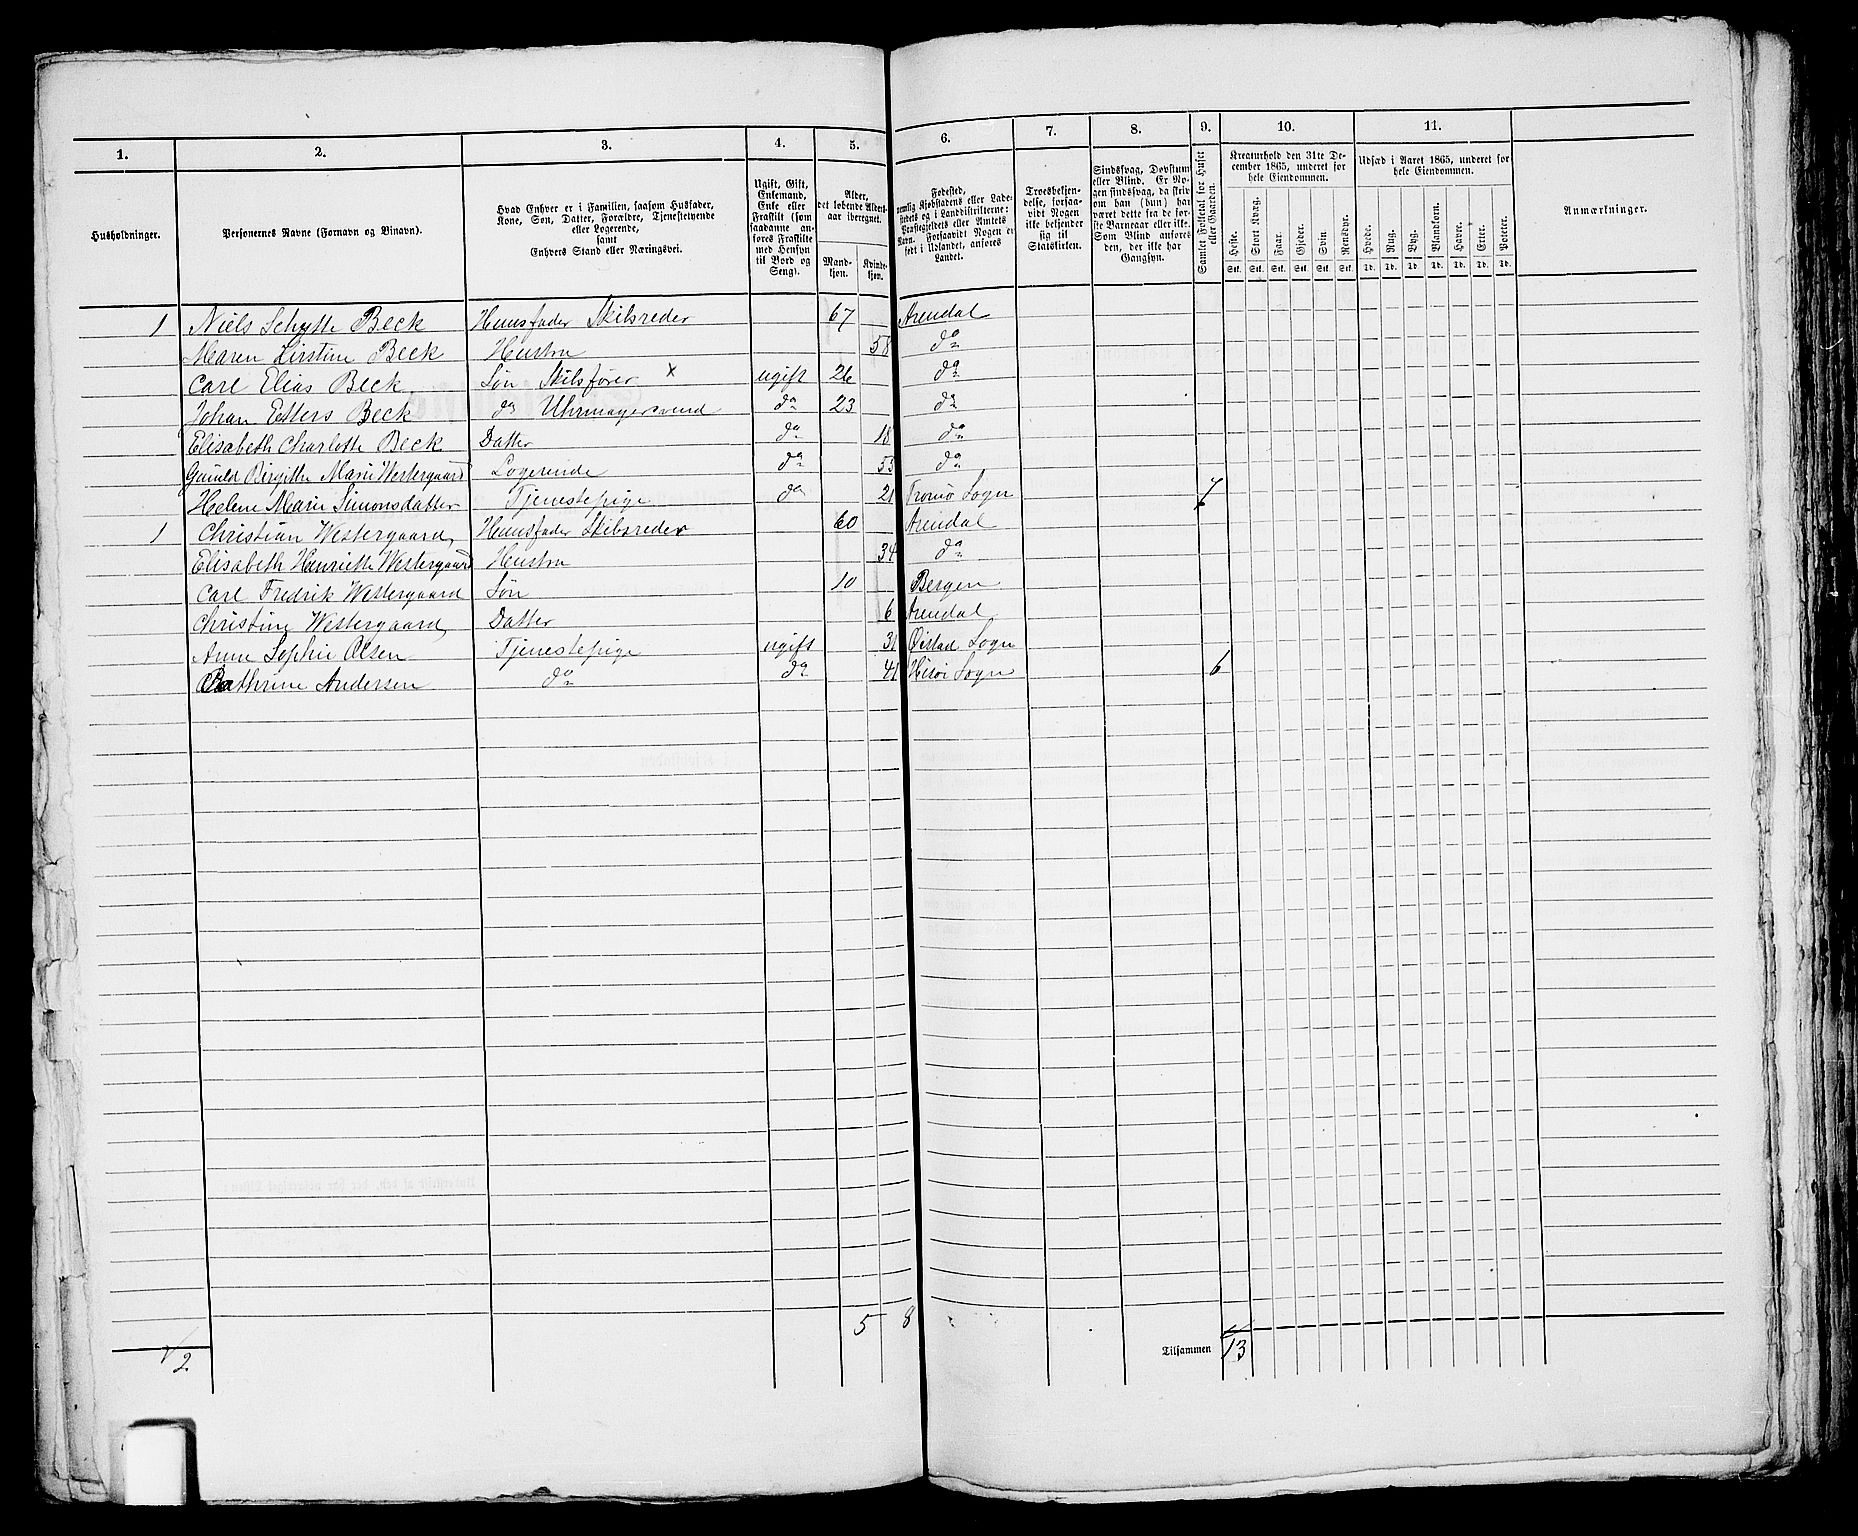 1. 2. 3. 4. 5. 6. 7. 8. 9. 10. 11.
Husholdninger.
Personernes Navne (Fornavn og Binavn).
Hvad Enhver er i Familien, saasom Husfader,
Kone, Søn, Datter, Forældre, Tjenestetyende
eller Logerende,
samt
Enhvers Stand eller Næringsvei.
Ugift, Gift,
Enkemand,
Enke eller
Fraskilt (som
saadanne an-
føres Fraskilte
med Hensyn
til Bord og
Seng).
Alder,
det løbende Alders-
aar iberegnet.
Mand-
kjøn.
Kvinde-
kjøn.
Fødested,
nemlig Kjøbstadens eller Lade-
stedets og i Landdistrikterne:
Præstegjeldets eller Amtets
Navn. Forsaavidt Nogen er
født i Udlandet, anføres
Landet.
Troesbekjen-
delse, forsaa-
vidt Nogen
ikke bekjender
sig til
Statskirken.
Sindssvag, Døvstum
eller Blind. Er No-
gen sindssvag, da skriv
om han (hun) har
været dette fra de før-
ste Barneaar eller ikke.
Som Blind anføres
den, der ikke har
Gangsyn.
Samlet Folketal for Huset
eller Gaarden.
Kreaturhold den 31te De-
cember 1865, underet for
hele Eiendommen.
Heste. Stort Kvæg. Faar. Gjeder. Svin. Rensdyr.
Stk. Stk. Stk. Stk. Stk. Stk.
Udsæd i Aaret 1865, underet for
hele Eiendommen.
Hvede. Rug. Byg. Blandkorn. Havre. Erter. Poteter.
Td. Td. Td. Td. Td. Td. Td.
Anmærkninger.
1 Niels Schytte Beck Huusfader Skibsreder 67 Arendal
Maren Kirstine Beck Hustru 58 do
Carl Elias Beck Søn Skibsfører x ugift 26 do
Johan Ellers Beck do Uhrmagersvend do 23 do
Elisabeth Charlotte Beck Datter do 18 do
Gunild Birgithe Marie Westergaard Logerende do 55 do
Helene Marie Simonsdatter Tjenestepige do 21 Tromø Sogn 7
1 Christian Westergaard Huusfader Skibsreder 60 Arendal
Elisabeth Henriette Westergaard Hustru 34 do
Carl Fredrik Westergaard Søn 10 Bergen
Christine Westergaard Datter 6 Arendal
Anne Sophie Olsen Tjenestepige ugift 31 Øistad Sogn
Cathrine Andersen do do 41 Hisøi Sogn 6
2 5 8 Tilsammen 13